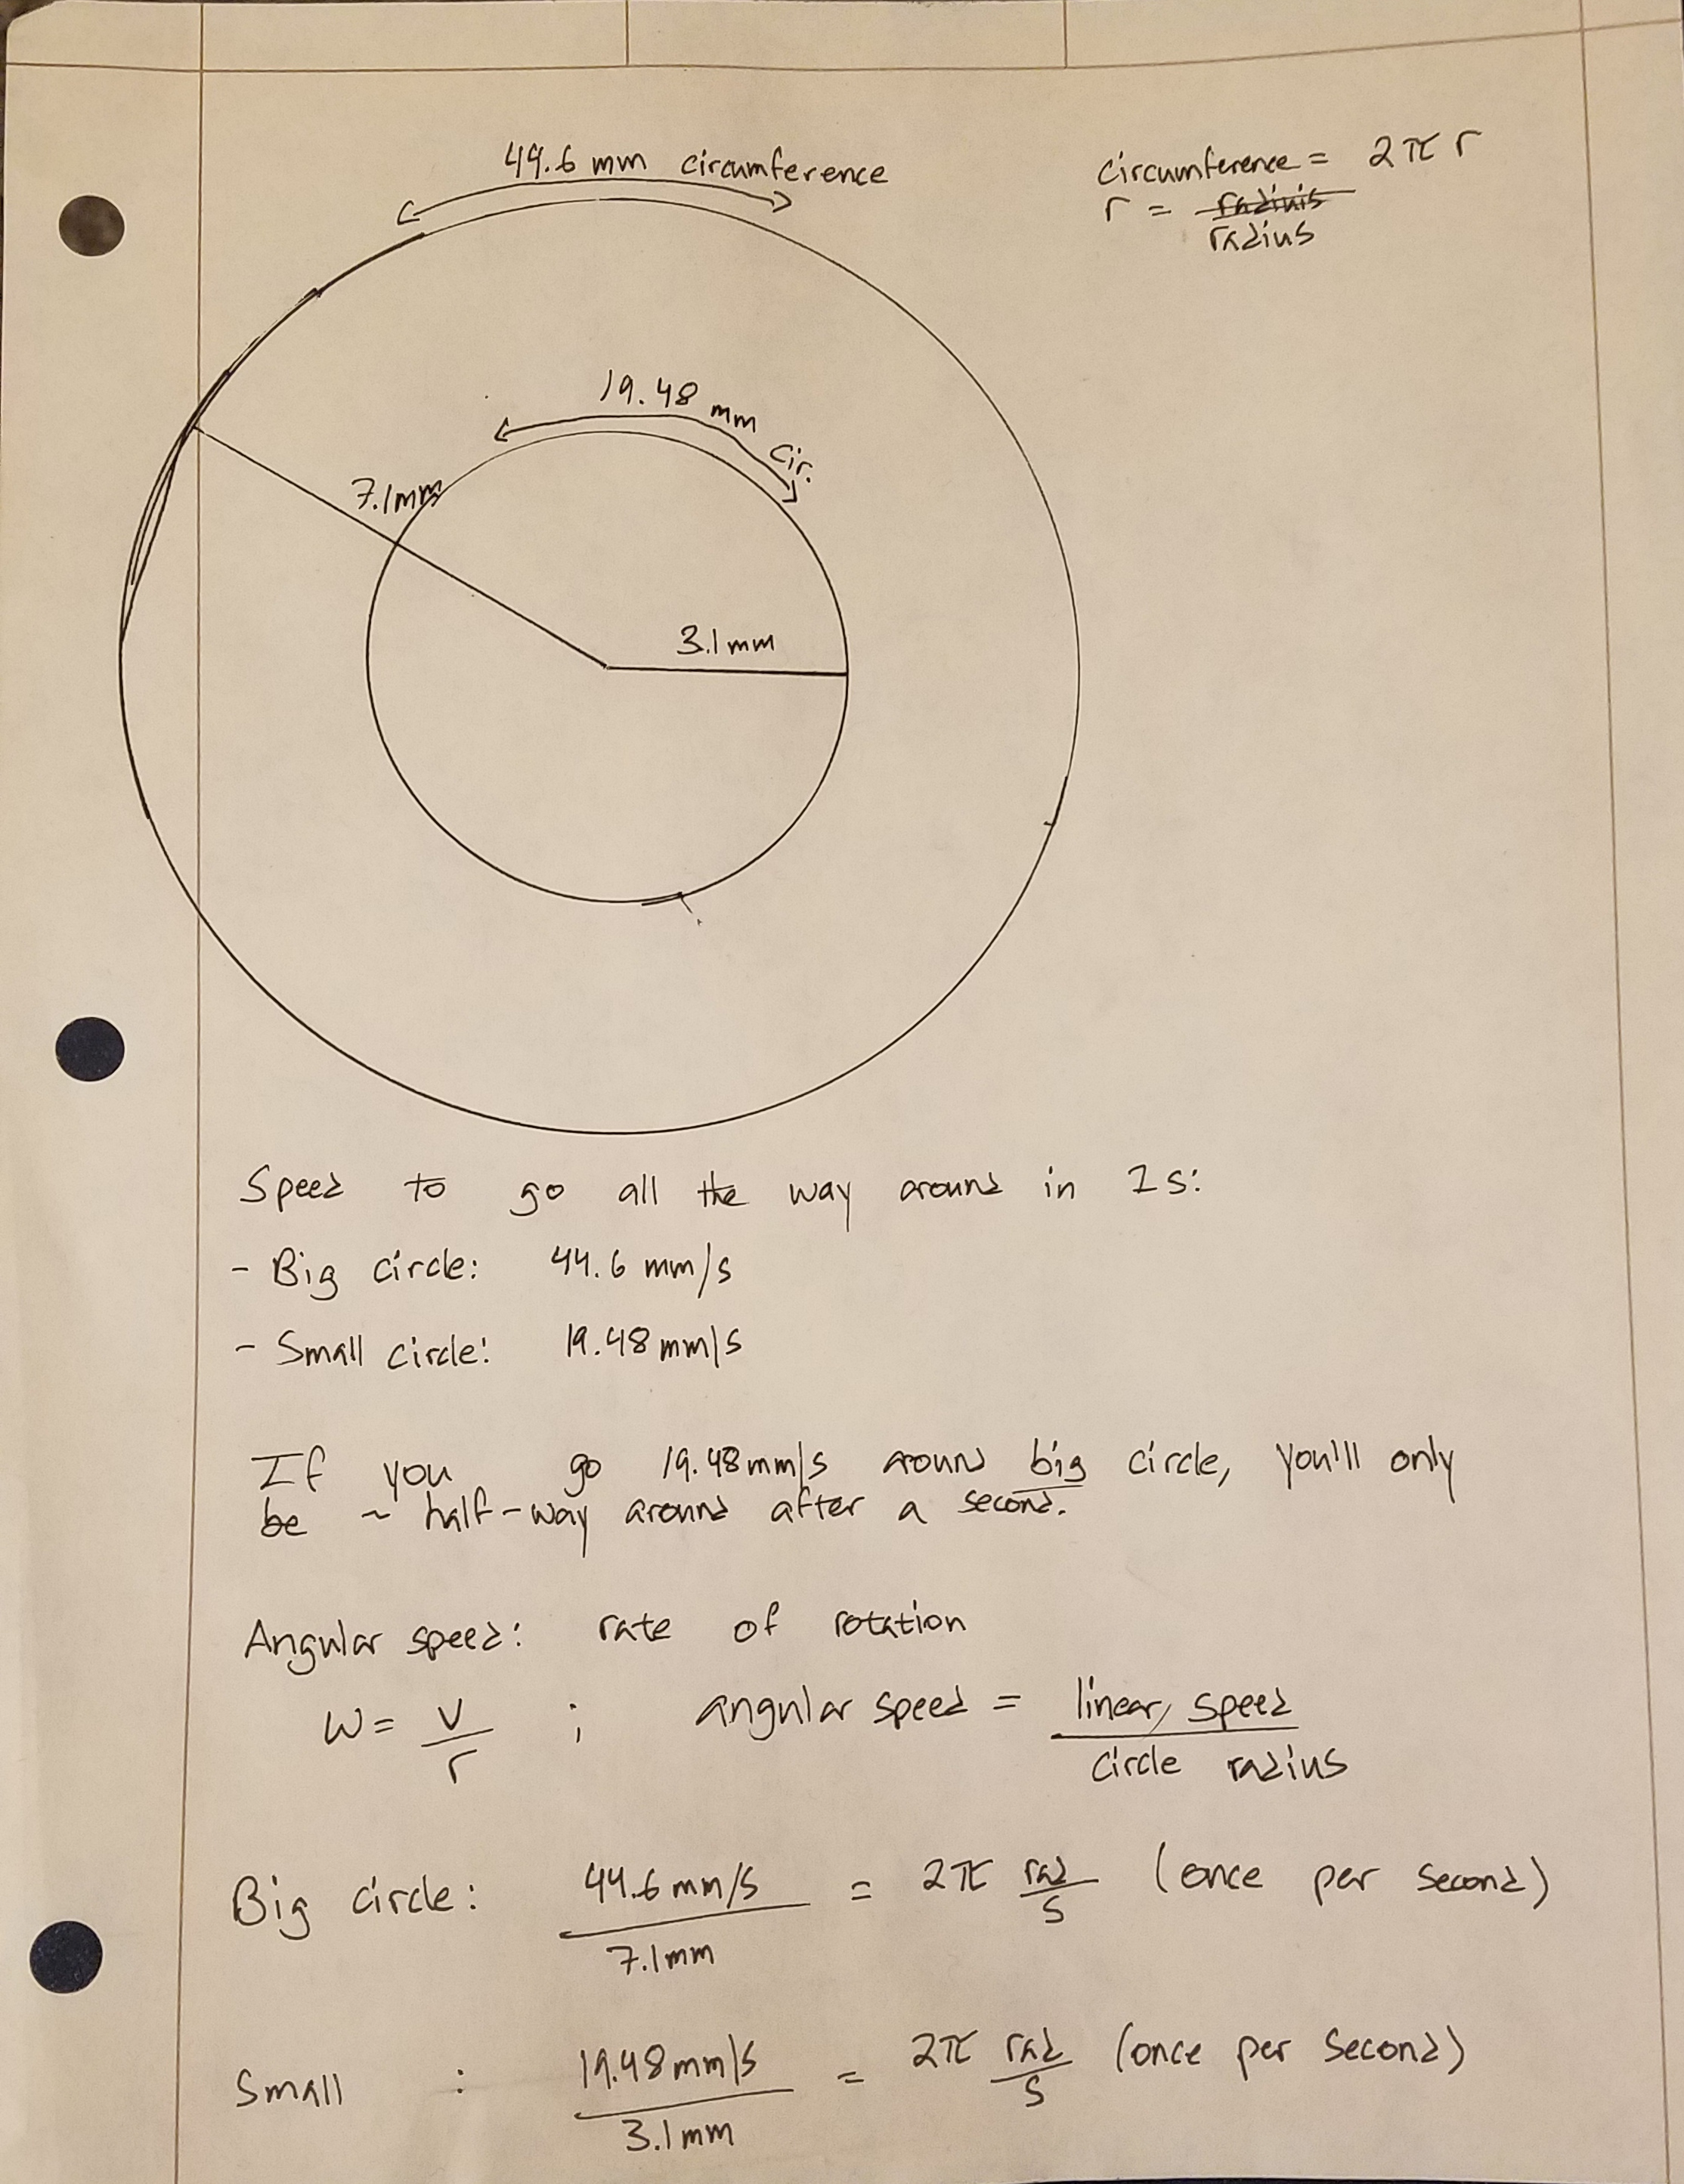 44.6 mm circumference
circumference = 2πr
r = radius
19.48 mm cir.
7.1mm
3.1mm
Speed to go all the way around in 1s:
- Big circle: 44.6 mm/s
- Small circle: 19.48 mm/s
If you go 19.48mm/s around big circle, you'll only
be ~ half-way around after a second.
Angular speed: rate of rotation
ω = v/r ; angular speed = linear speed / circle radius
Big circle: 44.6 mm/s / 7.1mm = 2π rad/s (once per second)
Small : 19.48mm/s / 3.1mm = 2π rad/s (once per second)